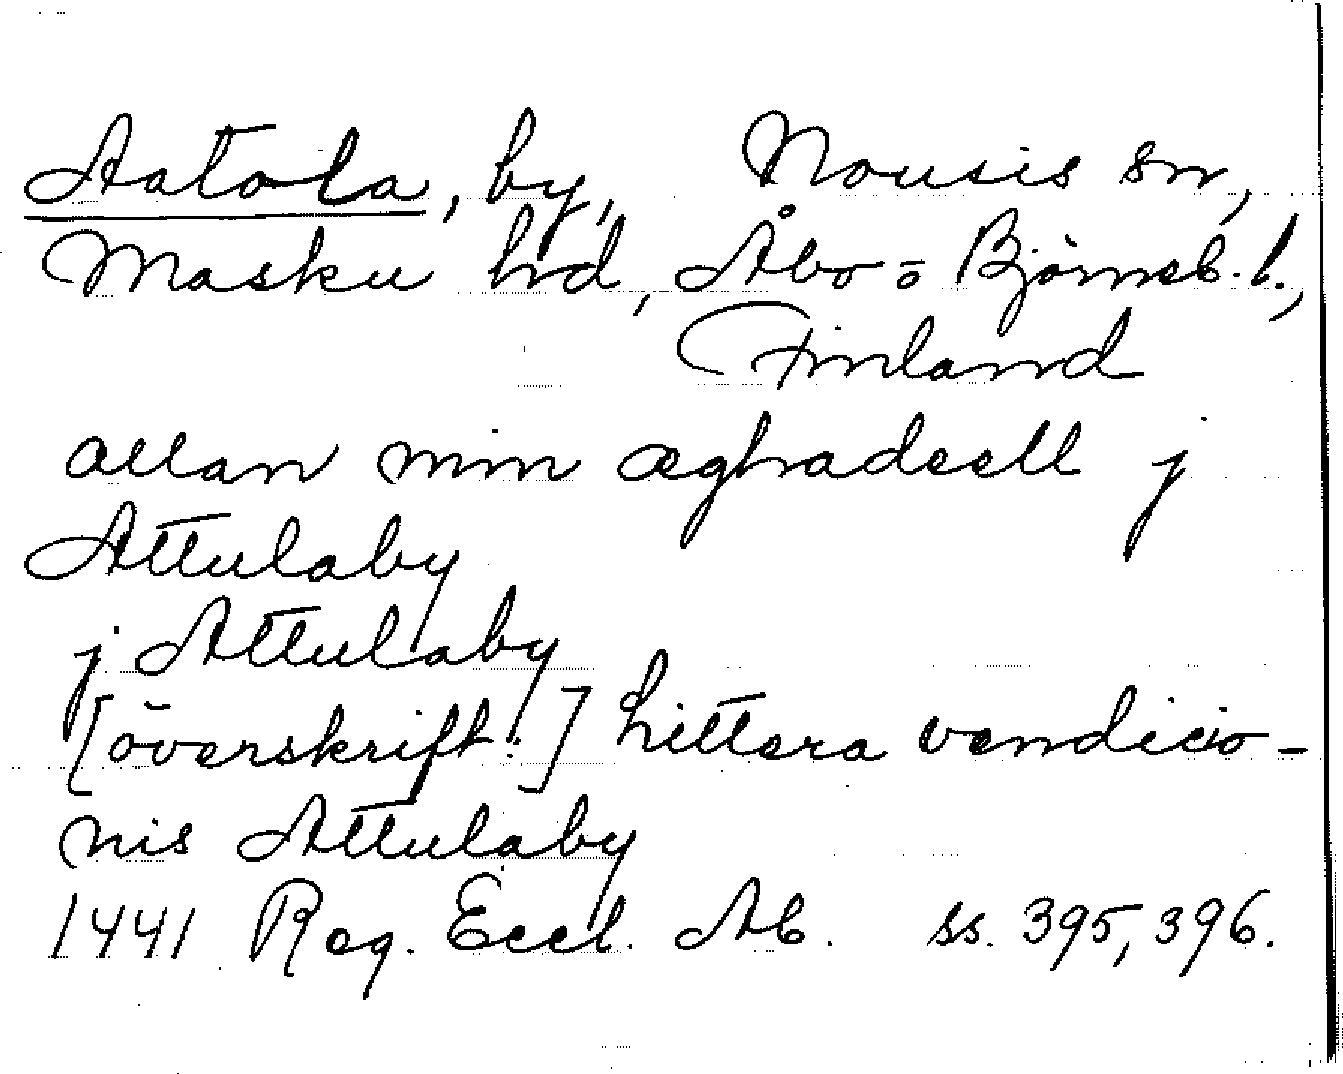 Aatola, by, Nousis sn,
Masku hd, Åbo = Björneb. l.,
Finland
allan min æghadeell j
Attulaby
j Attulaby
[överskrift:] Littera vendicio-
nis Attulaby
1441 Reg. Eccl. Ab. ss. 395, 396.